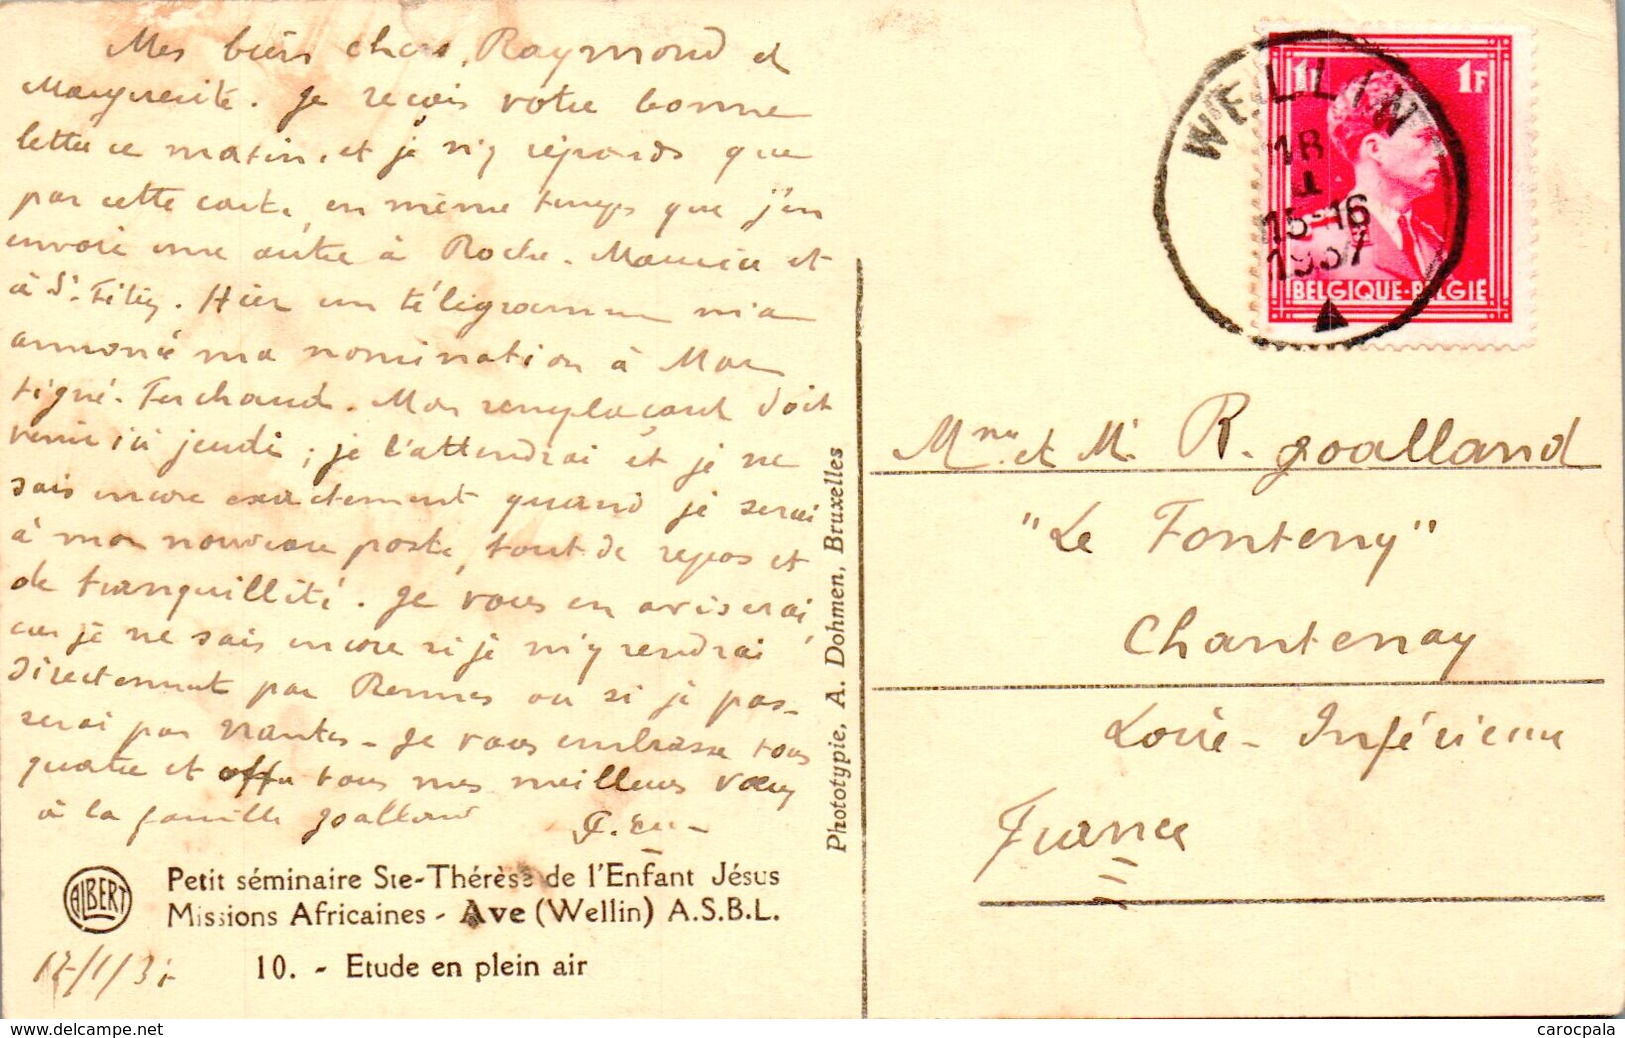 Mes biens chers Raymond et
Marguerite. Je reçois votre bonne
lettre ce matin, et je n'y réponds que
par cette carte, en même temps que j'en
envoie une autre à Roche-Maurice et
à St-
Hier un télégramme m'a
annoncé ma nomination à Mar
tigné-Ferchaud. Mon remplaçant doit
venir ici jeudi ; je l'attendrai et je ne
sais encore exactement quand je serai
à mon nouveau poste, tout de repos et
de tranquillité. Je vous en aviserai,
car je ne sais encore si je m'y rendrai
directement par Rennes ou si je pas-
serai par Nantes. Je vous embrasse tous
quatre et offre tous mes meilleurs vœux
à la famille Goalland
ALBERT
Petit séminaire Ste-Thérèse de l'Enfant Jésus
Missions Africaines - Ave (Wellin) A.S.B.L.
17/1/37
10. - Etude en plein air
Phototypie, A. Dohmen, Bruxelles
WELLIN
18
I
15-16
1937
1F
1F
BELGIQUE-BELGIË
Mme et Mr R. Goalland
"Le Fonteny"
Chantenay
Loire-Inférieure
France
www.delcampe.net
carocpala